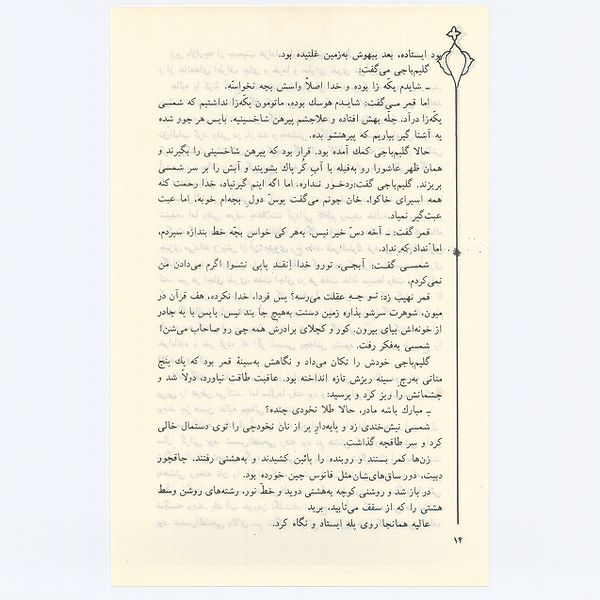 بود ایستاده، بعد بیهوش به‌زمین غلتیده بود.
گلیم‌باجی می‌گفت:
ـ شایدم یکّه زا بوده و خدا اصلاً واسش بچه نخواسّه.
اما قمر مـی‌گفت: شایـدم هوسك بوده، ماتومون یکّه‌زا نداشتیم که شمسی
یکّه‌زا درآد. چلّه بهش افتاده و علاجشم پیرهن شاخسینیه. بایس هر جور شده
یه آشنا گیر بیاریم که پیرهنشو بده.
حالا گلیم‌باجی کمك آمده بود. قرار بود که پیرهن شاخسینی را بگیرند و
همان ظهر عاشورا رو به‌قبله با آب کُر پاك بشویند و آبش را بر سر شمسی
بریزند. گلیم‌باجی گفت:ردخـور نـداره. اما اگه اینم گیرنیاد، خدا رحمت کنه
همه اسیرای خاکو!، خان جونم می‌گفت پوس دول بچه‌ام خوبه، اما عبث
عبث‌گیر نمیاد.
قمر گفت: ـ آخه دسّ خیر نیس. به‌هر کی خواس بچّه خط بندازه سپردم،
اما نداد که نداد.
شمسـی گفـت: آبجـی، تورو خدا اِنقـد پاپی نشـو! اگرم می‌دادن من
نمی‌کردم.
قمر نهیب زد: تـو چـه عقلت می‌رسه؟ پس فردا، خدا نکرده، هف قرآن در
میون، شوهرت سرشو بذاره زمین دستت به‌هیچ جا بند نیس. بایس با یه چادر
از خونه‌اش بیای بیرون. کور و کچلای برادرش همه چی رو صاحاب می‌شن!
شمسی به‌فکر رفت.
گلیم‌باجی خودش را تکان می‌داد و نگاهش به‌سینهٔ قمر بود که یك پنج
مثانی به‌رج سینه ریزش تازه انداخته بود. عاقبت طاقت نیاورد، دولاّ شد و
چشمانش را ریز کرد و پرسید:
ـ مبارك باشه مادر، حالا طلا نخودی چنده؟
شمسی نیش‌خندی زد و پایه‌دار پر از نان نخودچی را توی دستمال خالی
کرد و سر طاقچه گذاشت.
زن‌ها کمر بستند و روبنده را پائین کشیدند و به‌هشتی رفتند. چاقچور
دبیت، دور ساق‌های‌شان مثل فانوس چین خورده بود.
در باز شد و روشنی کوچه به‌هشتی دوید و خطّ نور، رشته‌های روشن وسط
هشتی را که از سقف می‌تابید، برید
عالیه همانجا روی پله ایستاد و نگاه کرد.
۱۴